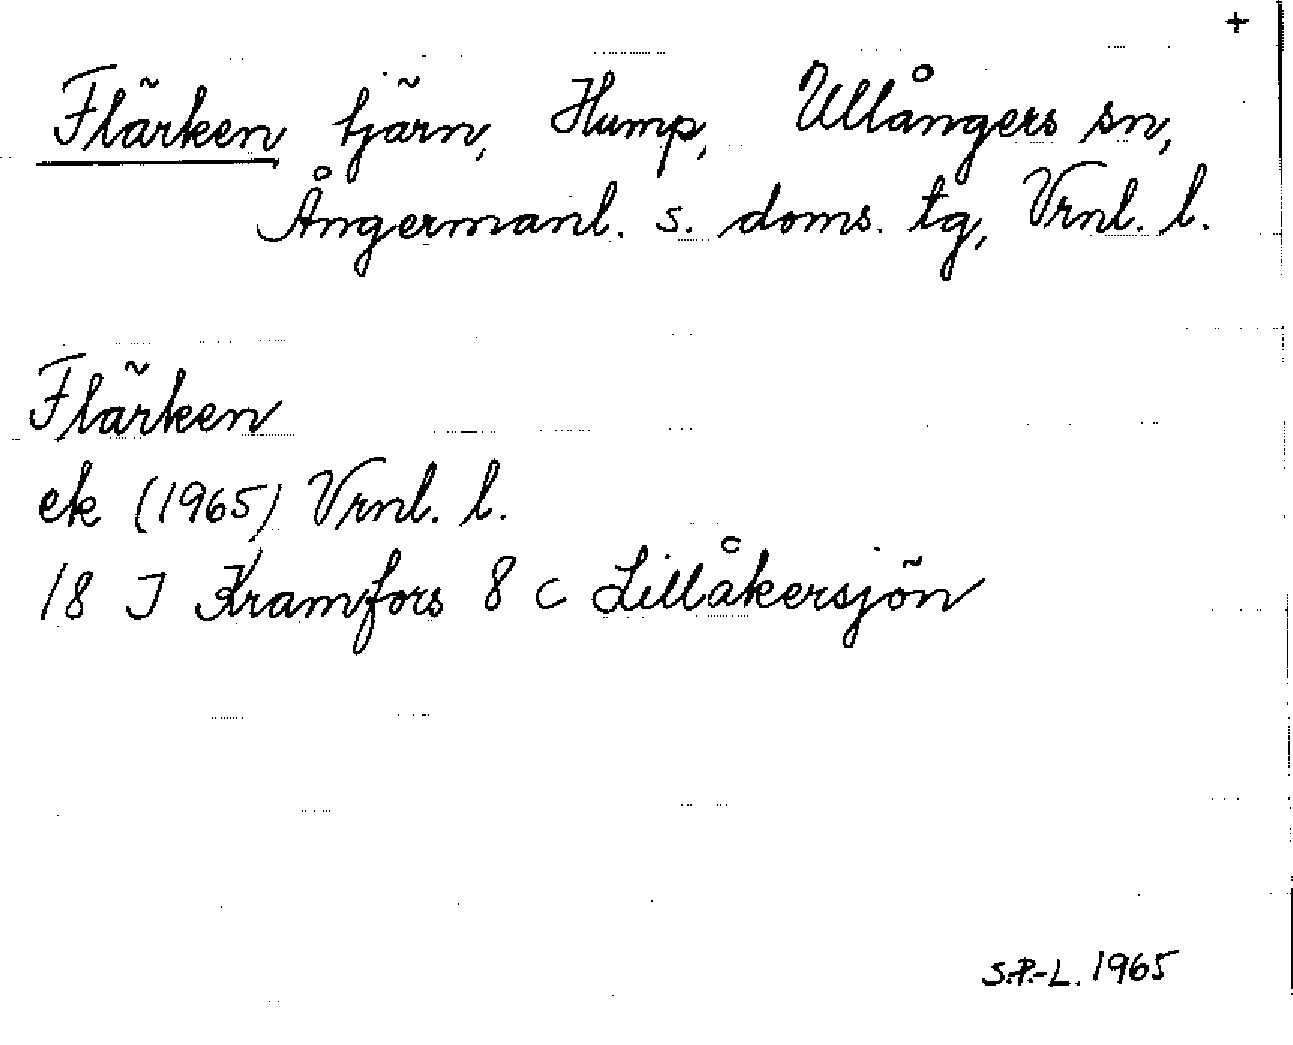 +
Flärken tjärn, Hump, Ullångers sn,
Ångermanl. s. doms. tg, Vrnl. l.
Flärken
ek (1965) Vrnl. l.
18 J Kramfors 8 c Lillåkersjön
S.P.-L. 1965